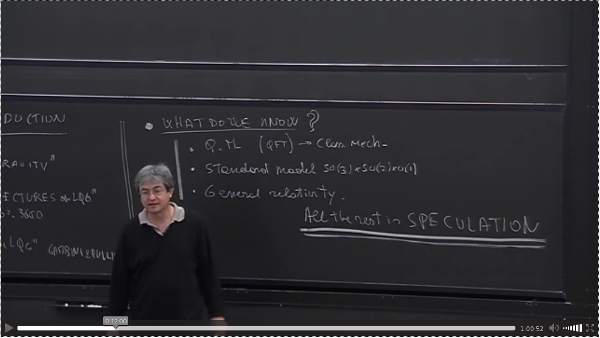 DUCTION
RAVITY"
ECTURES on LQG"
3650
LQG" GAMBINI & PULLI
• WHAT DO WE KNOW?
• Q.M (QFT) → Class Mech-
• Standard model SU(3)×SU(2)×U(1)
• General relativity.
All the rest is SPECULATION
0:12:00
1:00:52